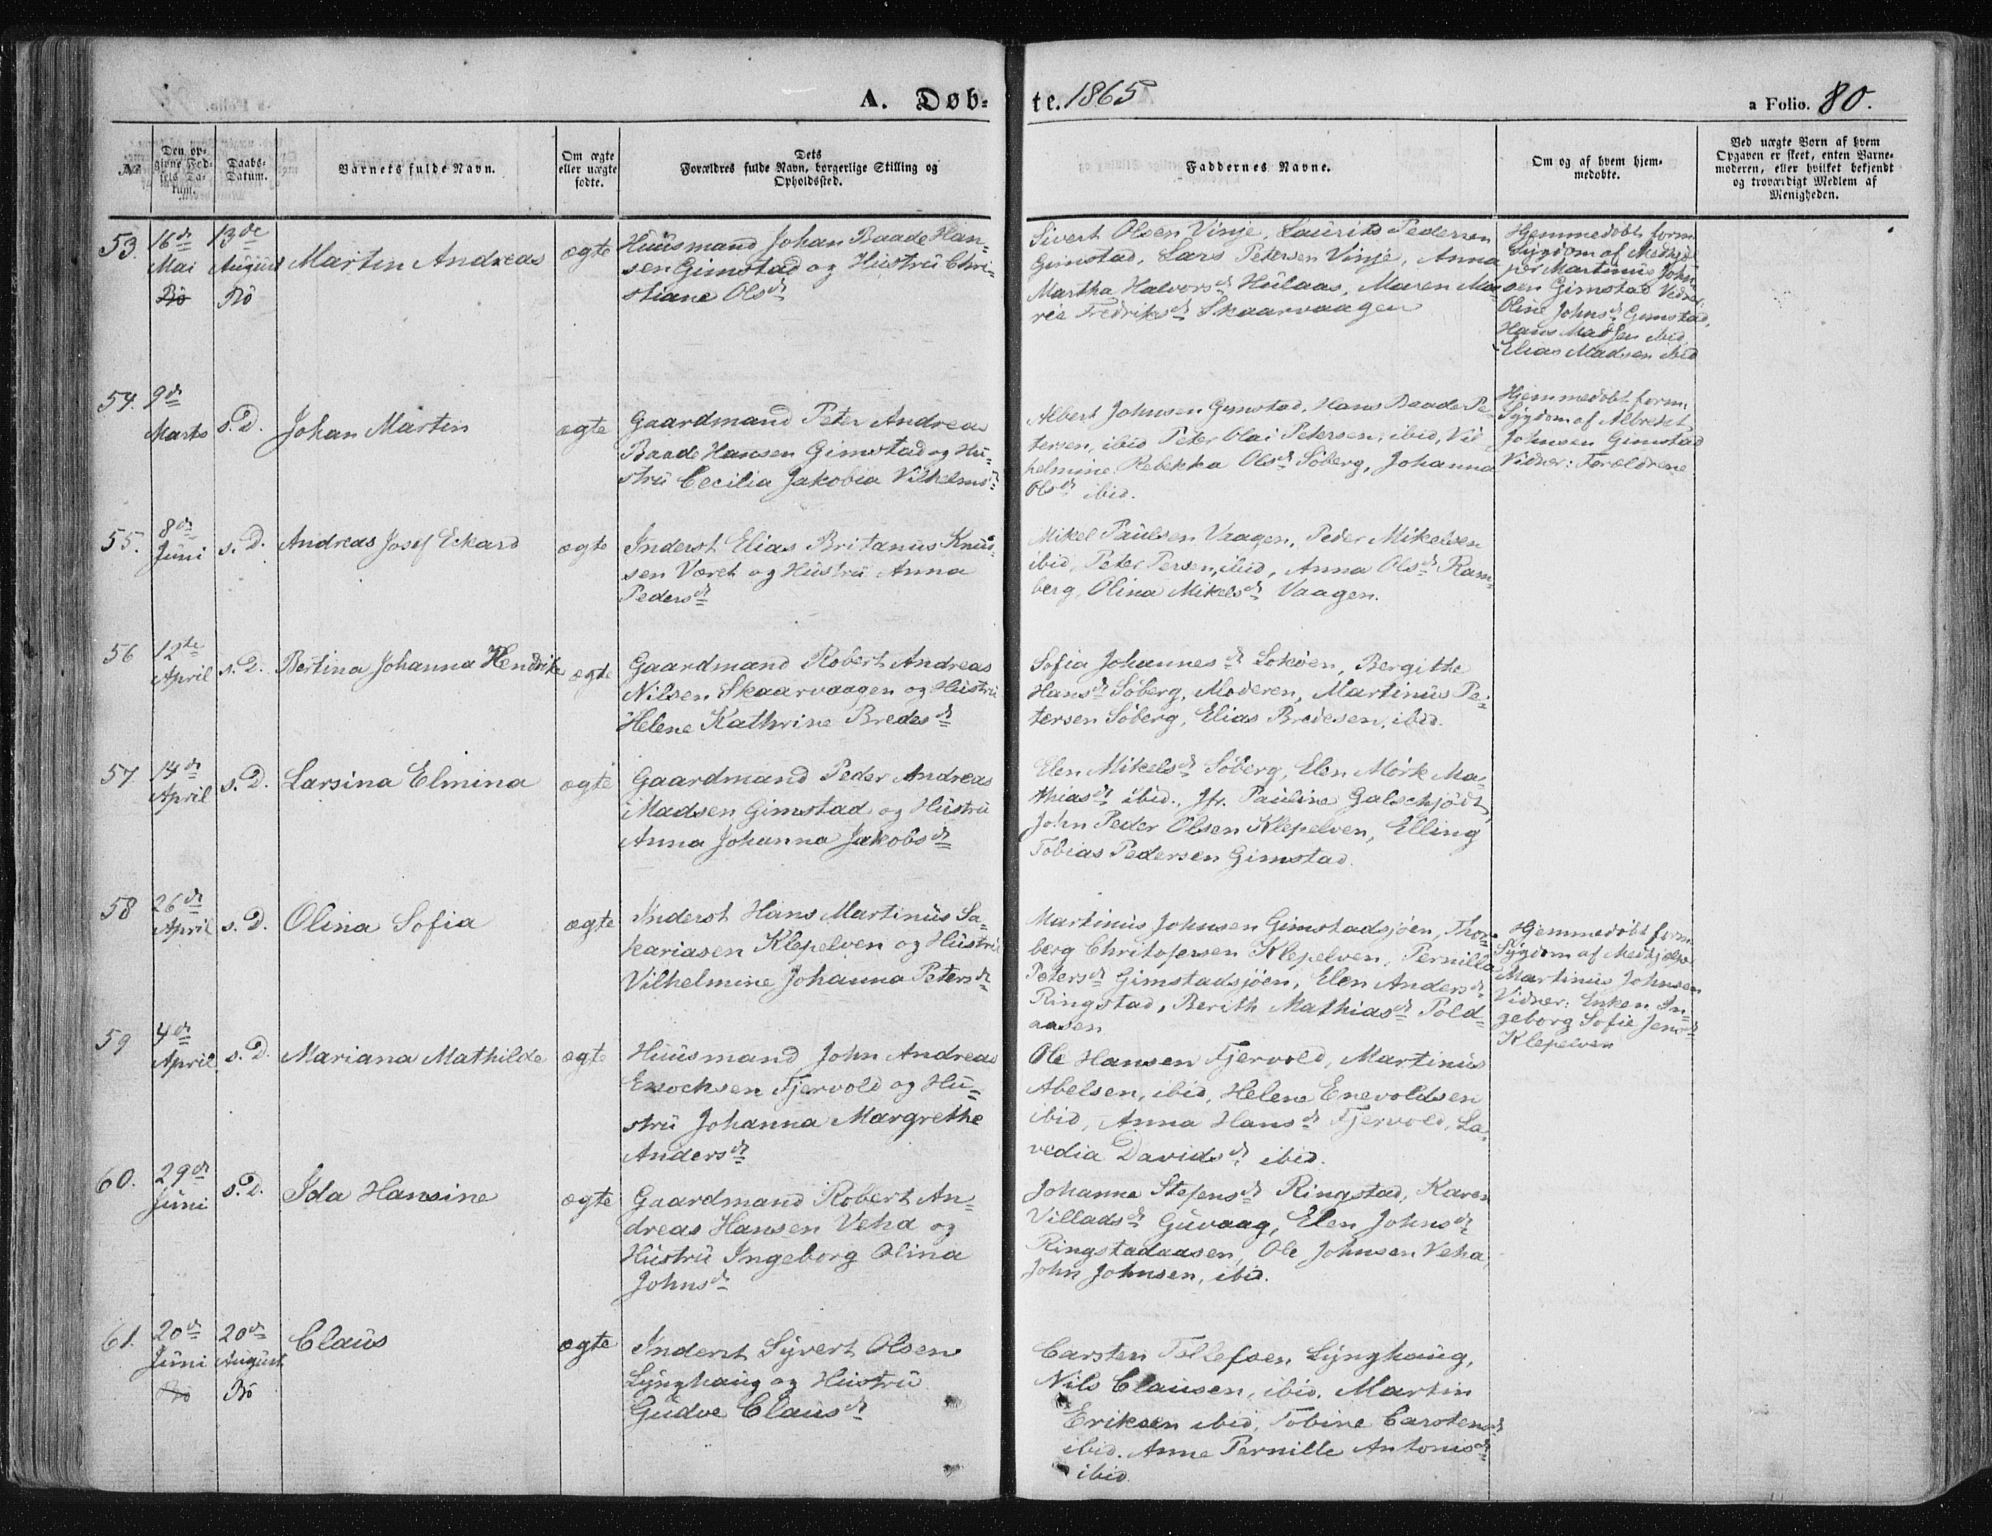 A. Døb-
te. 1865
a Folio. 80.
No
Den op-
givne Fød-
sels Da-
tum.
Daabs-
Datum.
Barnets fulde Navn.
Om ægte
eller uægte
fødte.
Dets
Forældres fulde Navn, borgerlige Stilling og
Opholdssted.
Faddernes Navne.
Om og af hvem hjem-
medøbte.
Ved uægte Børn af hvem
Opgaven er skeet, enten Barne-
moderen, eller hvilket bekjendt
og troværdigt Medlem af
Menigheden.
53.
16de
Mai
Bö
13de
August
Bö
Martin Andreas
ægte
Huusmand Johan Baade Han-
sen Gimstad og Hustru Chri-
stiane Olsdr
Sivert Olsen Vinje, Laurits Pedersen
Gimstad, Lars Petersen Vinje, Anna
Martha Halvorsdr Hulaas, Maren Ma-
rie Fredriksdr Skaarvaagen
Hjemmedöbt form.
Sygdom af Medhjæl
per Martinus John
sen Gimstad Vidner
Oline Johnsdr Gimstad,
Hans Madsen ibid
Elias Madsen ibid
54.
9de
Marts
s. D.
Johan Martin
ægte
Gaardmand Peter Andreas
Baade Hansen Gimstad og Hu-
stru Cecilia Jakobia Vilhelmsdr
Albert Johnsen Gimstad, Hans Baade Pe-
tersen, ibid Peter Olai Petersen, ibid, Vil-
helmine Rebekka Olsdr Söberg, Johanna
Olsdr ibid.
Hjemmedöbt form.
Sygdom af Albregt
Johnsen Gimstad
Vidner: Forældrene
55.
8de
Juni
s. D.
Andreas Josef Eckard
ægte
Inderst Elias Britanus Knud-
sen Været og Hustru Anna
Pedersdr
Mikel Paulsen Vaagen, Peder Mikelsen
ibid, Peter Persen, ibid, Anna Olsdr Ram-
berg, Olina Mikelsdr Vaagen.
56
12te
April
s. D.
Bertina Johanna Hendrike
ægte
Gaardmand Robert Andreas
Nilsen Skaarvaagen og Hustru
Helene Kathrine Bredesdr
Sofia Johannesdr Lokøen, Bergithe
Hansdr Söberg, Moderen, Martinus Pe-
tersen Söberg, Elias Bredesen, ibid.
57
14de
April
s. D.
Larsina Elmina
ægte
Gaardmand Peder Andreas
Madsen Gimstad og Hustru
Anna Johanna Jakobsdr
Elen Mikelsdr Söberg, Elen Mörk Ma-
thiasdr ibid., Jfr. Pauline Galschjödt,
John Peder Olsen Klepelven, Elling
Tobias Pedersen Gimstad.
58
26de
April
s. D.
Olina Sofia
ægte
Inderst Hans Martinus Sa-
kariasen Klepelven og Hustru
Vilhelmine Johanna Petersdr
Martinus Johnsen Gimstadsjöen, Thor-
berg Christofersen Klepelven, Pernilla
Petersdr Gimstadsjöen, Elen Andersdr
Ringstad, Berith Mathiasdr Pold-
aasen
Hjemmedöbt form.
Sygdom af Medhjelper
Martinus Johnsen
Vidner: Enken In-
geborg Sofie Jensdr
Klepelven
59
4de
April
s. D.
Mariana Mathilde
ægte
Huusmand John Andreas
Enochsen Fjervold og Hu-
stru Johanna Margrethe
Andersdr
Ole Hansen Fjervold, Martinus
Abelsen, ibid, Helene Enevoldsen
ibid, Anna Hansdr Fjervold, La-
vedia Davidsdr ibid.
60.
29de
Juni
s. D.
Ida Hansine
ægte
Gaardmand Robert An-
dreas Hansen Veha og
Hustru Ingeborg Olina
Johnsdr
Johanna Stefensdr Ringstad, Karen
Villadsdr Guvaag, Elen Johnsdr
Ringstadaasen, Ole Johnsen Veha,
John Johnsen, ibid.
61.
20de
Juni
Bö
20de
August
Bö
Claus
ægte
Inderst Syvert Olsen
Lynghaug og Hustru
Gudve Clausdr
Carsten Tollefsen Lynghaug,
Nils Clausen, ibid. Martin
Eriksen ibid, Tobine Carstensdr
ibid. Anne Pernille Antonisdr
ibid.